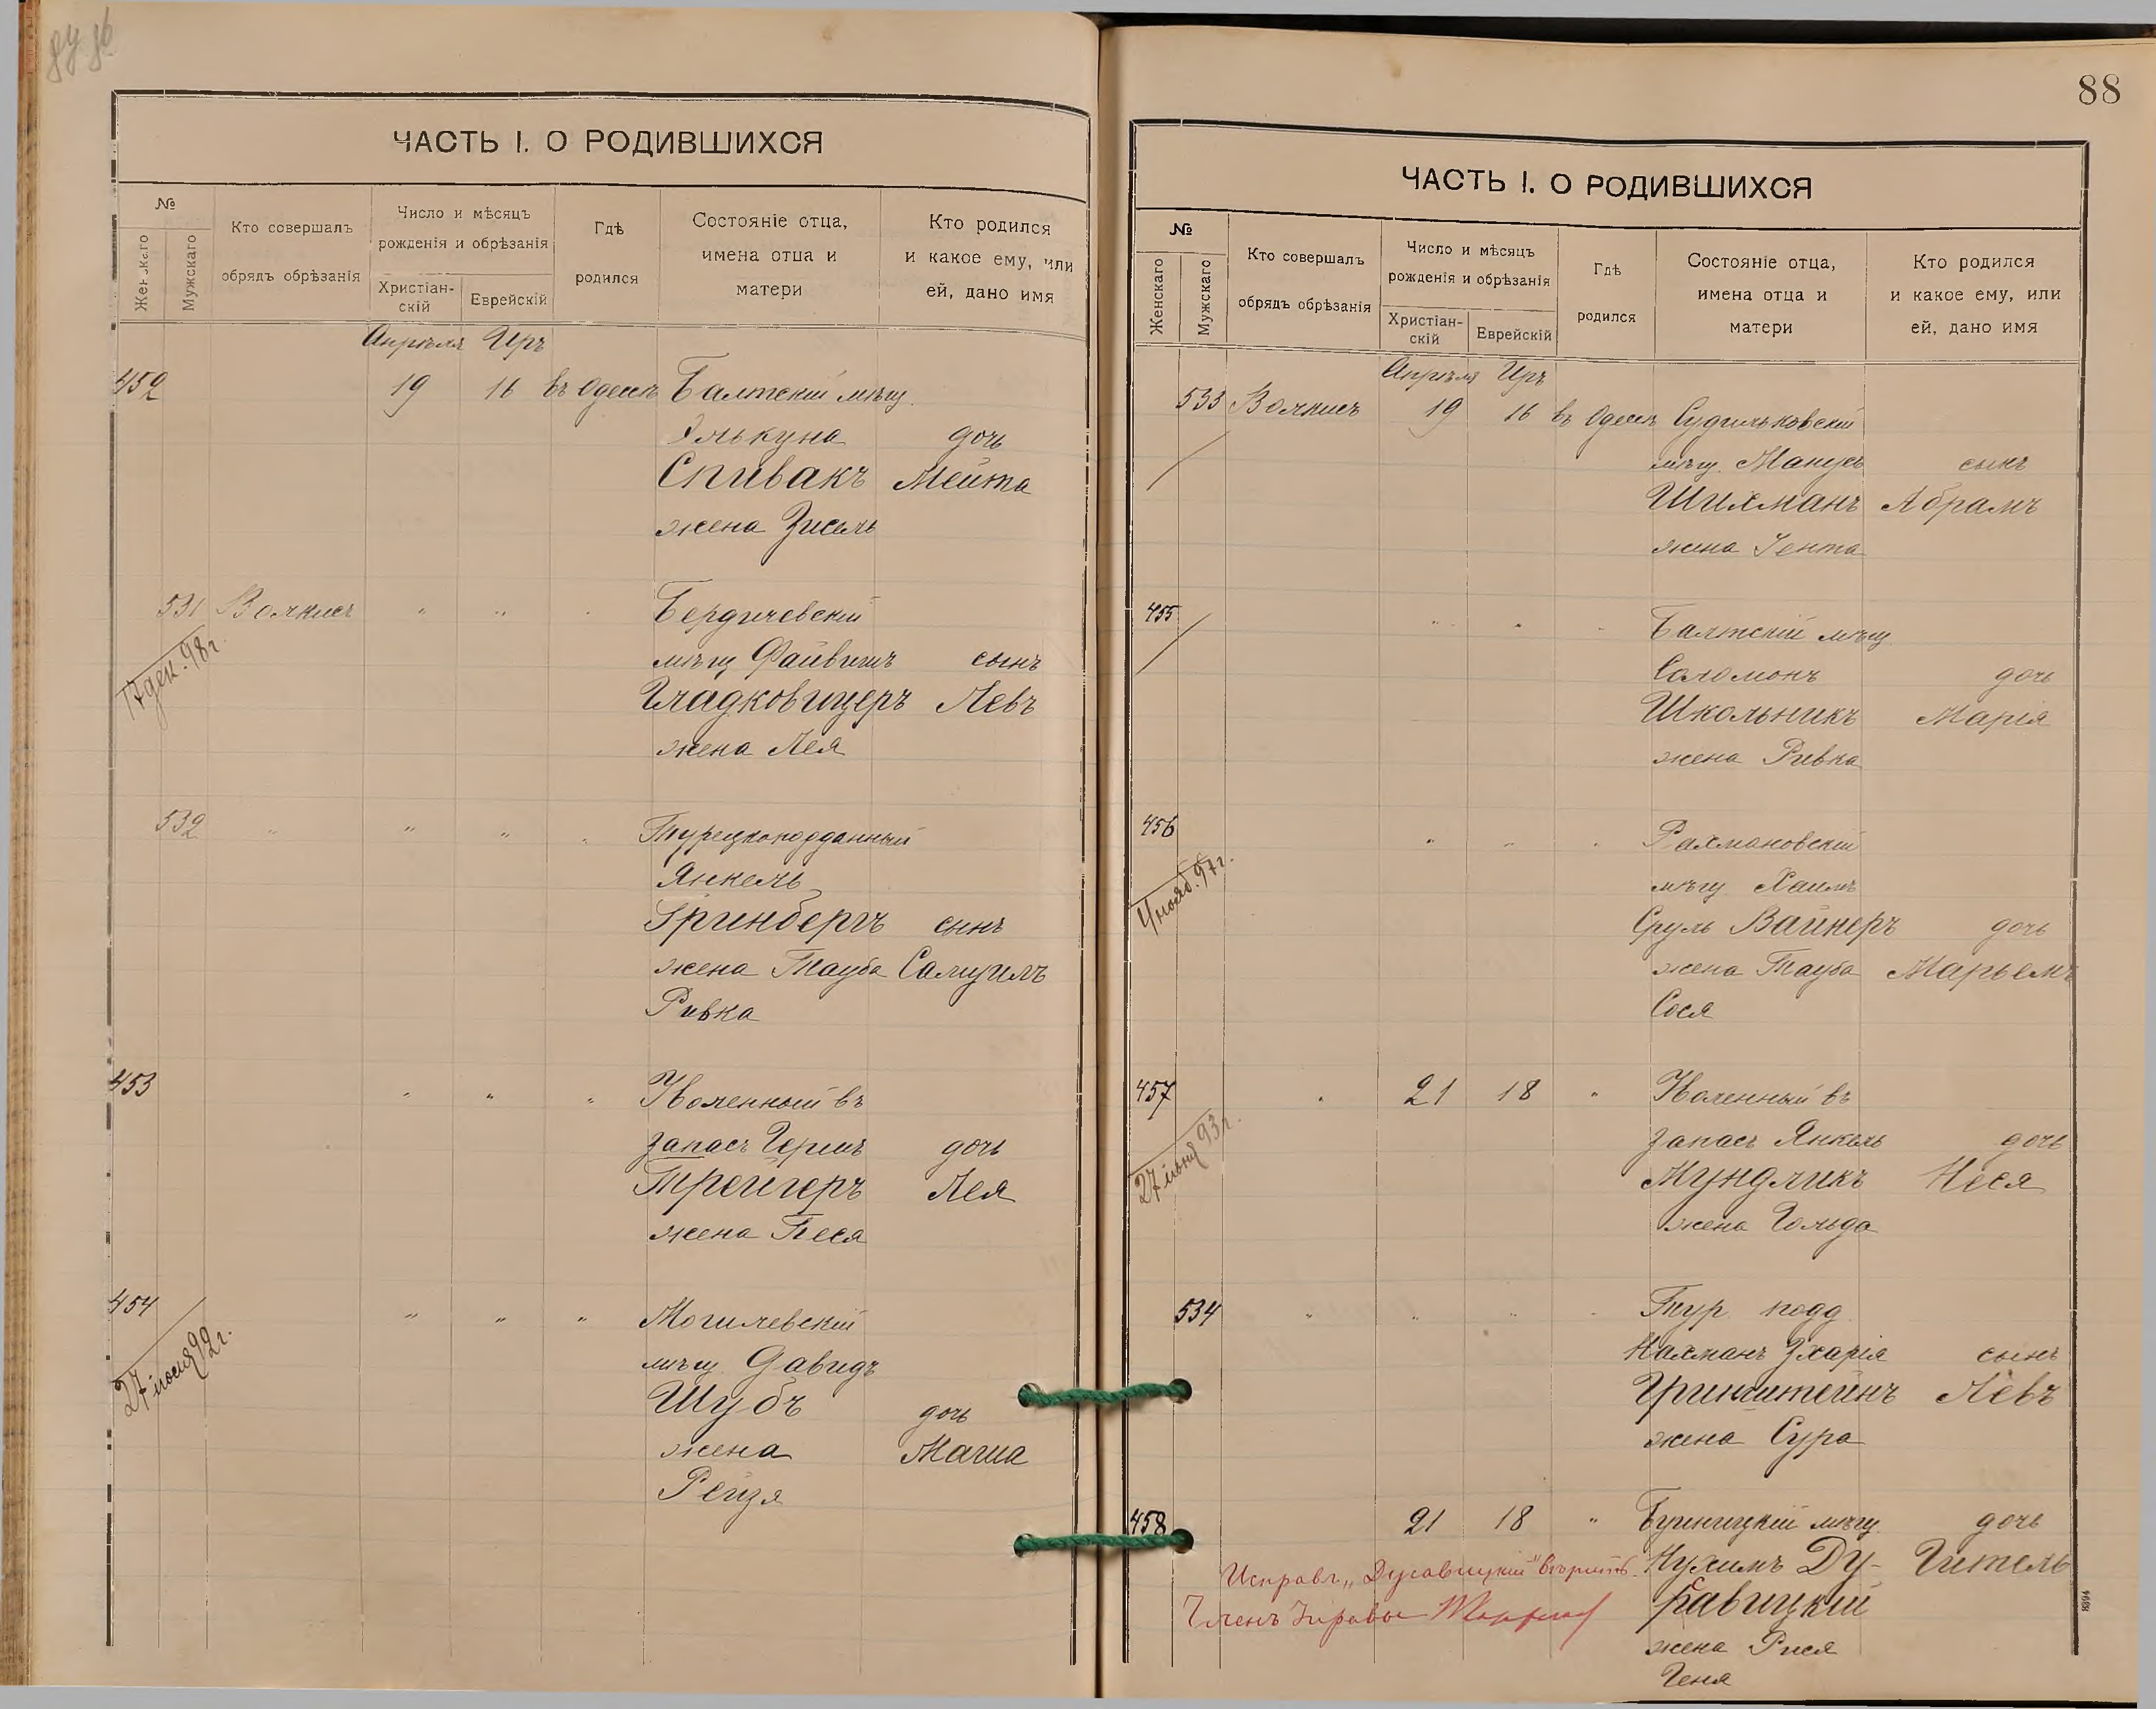 ЧАСТЬ I. О РОДИВШИХСЯ
№
Женскаго
Мужскаго
Кто совершалъ
обрядъ обрѣзанія
Число и мѣсяцъ
рожденія и обрѣзанія
Христіан-
скій
Еврейскій
Гдѣ
родился
Состояніе отца,
имена отца и
матери
Кто родился
и какое ему, или
ей, дано имя
Апрѣля Иръ
452 19 16 въ Одессѣ Балтскій мѣщ.
Элькуна дочь
Спивакъ Мейта
жена Зисель
531 Волкисъ " " " Бердичевскій
17 дек. 98 г.
мѣщ Файвишъ сынъ
Гладковицеръ Левъ
жена Лея
532 " " " " Турецкоподданный
Янкель
Гринбергъ сынъ
жена Тауба Самуилъ
Ривка
453 " " " Уволенный въ
запасъ Гершъ дочь
Трейгеръ Лея
жена Песя
454 " " " Могилевскій
27 92 г.
мѣщ. Давидъ
Шубъ дочь
жена Маша
Рейзя
88
ЧАСТЬ I. О РОДИВШИХСЯ
№
Женскаго
Мужскаго
Кто совершалъ
обрядъ обрѣзанія
Число и мѣсяцъ
рожденія и обрѣзанія
Христіан-
скій
Еврейскій
Гдѣ
родился
Состояніе отца,
имена отца и
матери
Кто родился
и какое ему, или
ей, дано имя
Апрѣля Иръ
533 Волкисъ 19 16 въ Одессѣ Судильковскій
мѣщ. Манусъ сынъ
Шихманъ Абрамъ
жена Іента
455 " " " Балтскій мѣщ
Соломонъ дочь
Школьникъ Марія
жена Ривка
456 " " " Рахмановскій
4 нояб. 97 г.
мѣщ Хаимъ
Сруль Вайнеръ дочь
жена Тауба Марьемъ
Сося
457 " 21 18 " Уволенный въ
27 93 г.
запасъ Янкель дочь
Мундликъ Неся
жена Гольда
534 " " " " Тур. подд.
Нахманъ Зхарія сынъ
Гринштейнъ Левъ
жена Сура
458 21 18 " мѣщ. дочь
Нухимъ Ду- Гитель
савицкій
жена Рися
Геня
Исправл. „Дусавицкій" вѣрить.
Членъ Управы